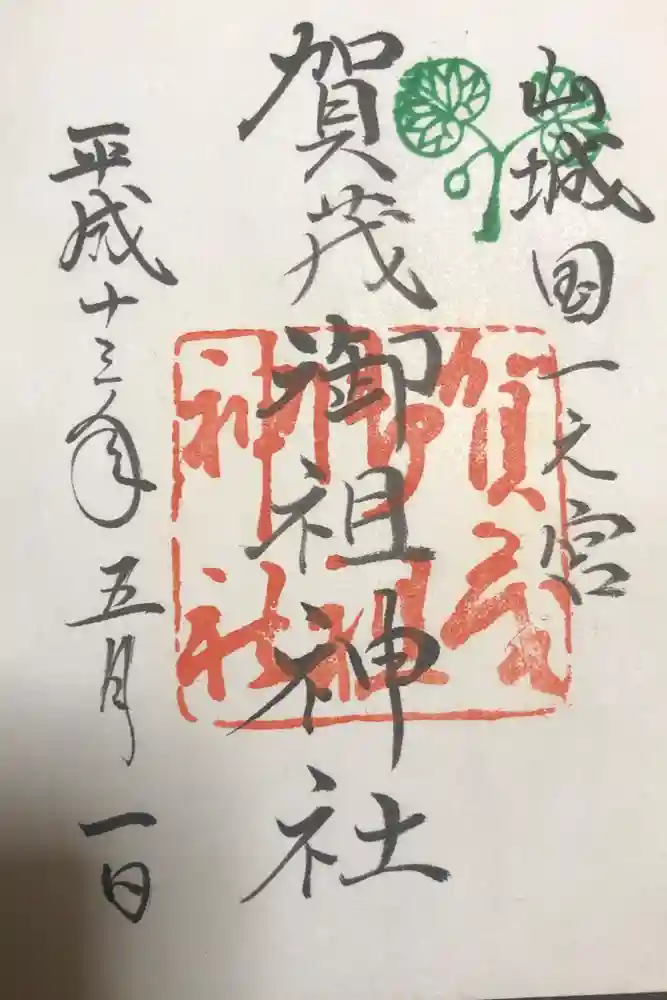 山城国一之宮
賀茂御祖神社
平成十三年五月一日
賀茂
御祖
神社